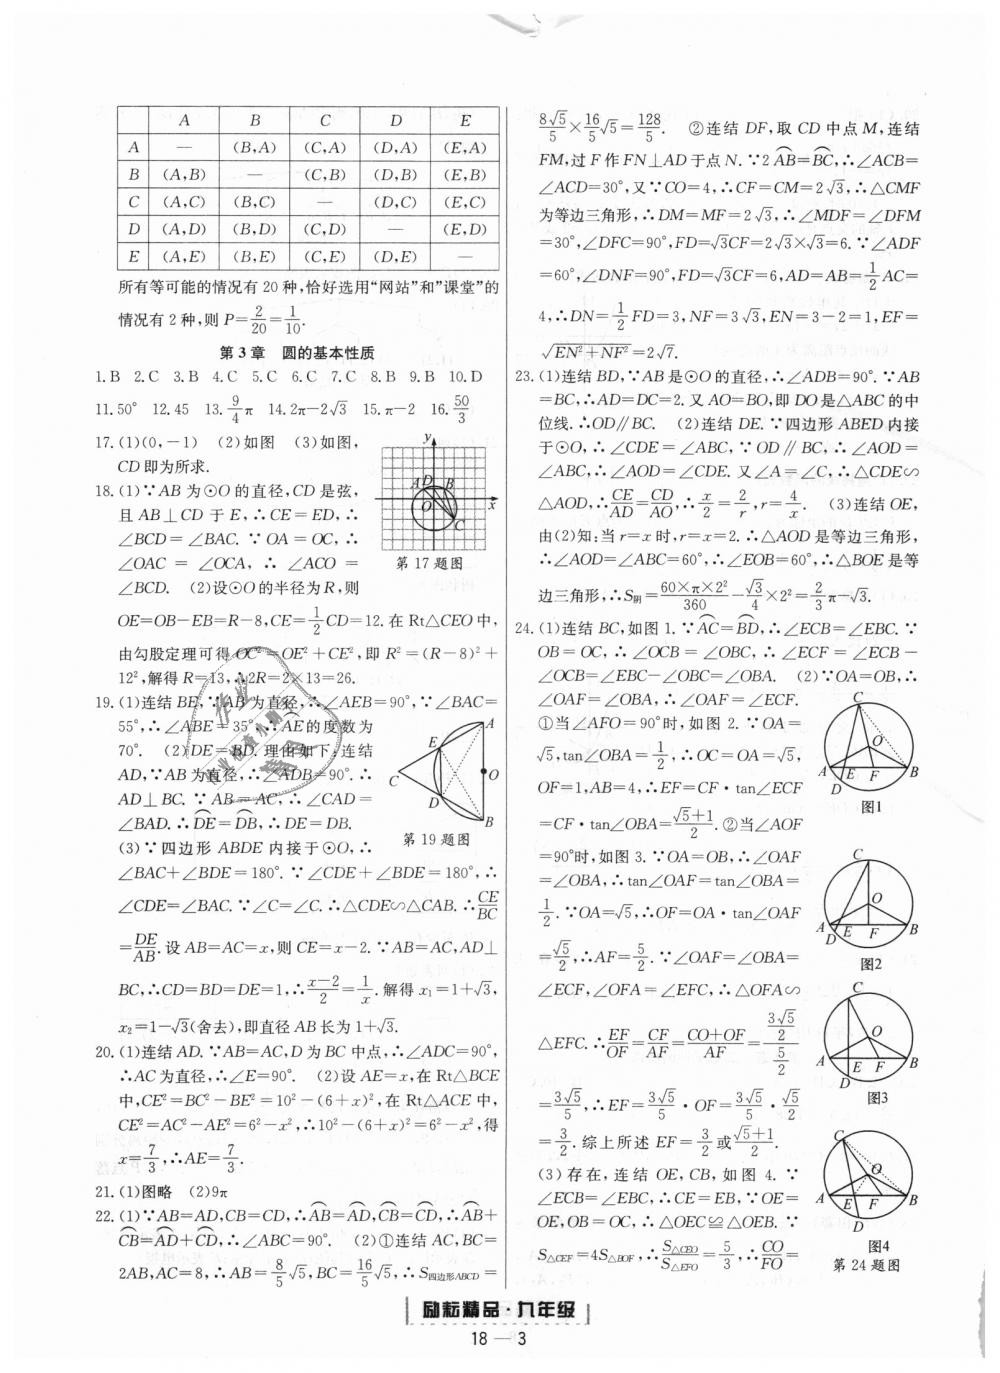 A B C D E
A — (B,A) (C,A) (D,A) (E,A)
B (A,B) — (C,B) (D,B) (E,B)
C (A,C) (B,C) — (D,C) (E,C)
D (A,D) (B,D) (C,D) — (E,D)
E (A,E) (B,E) (C,E) (D,E) —
所有等可能的情况有 20 种,恰好选用“网站”和“课堂”的
情况有 2 种,则 P=2/20=1/10.
第 3 章 圆的基本性质
1.B 2.C 3.B 4.C 5.C 6.C 7.C 8.B 9.B 10.D
11.50° 12.45 13.9/4π 14.2π−2√3 15.π−2 16.50/3
17.(1)(0,−1) (2)如图 (3)如图,
CD 即为所求.
18.(1)∵AB 为⊙O 的直径,CD 是弦,
且 AB⊥CD 于 E,∴CE=ED,∴
∠BCD=∠BAC. ∵OA=OC,∴
∠OAC = ∠OCA, ∴ ∠ACO =
∠BCD. (2)设⊙O 的半径为 R,则
y
A D B
O
C
x
第 17 题图
OE=OB−EB=R−8,CE=1/2CD=12.在 Rt△CEO 中,
由勾股定理可得 OC²=OE²+CE²,即 R²=(R−8)²+
12²,解得 R=13,∴2R=2×13=26.
19.(1)连结 BE,∵AB 为直径,∴∠AEB=90°,∵∠BAC=
55°,∴∠ABE=35°,∴AE的度数为
70°. (2)DE=BD. 理由如下:连结
AD,∵AB 为直径,∴∠ADB=90°.∴
AD⊥BC. ∵AB=AC,∴∠CAD=
∠BAD.∴D͡E=D͡B,∴DE=DB.
(3)∵四边形 ABDE 内接于⊙O,∴
A
E
C
O
D
B
第 19 题图
∠BAC+∠BDE=180°. ∵∠CDE+∠BDE=180°,∴
∠CDE=∠BAC.∵∠C=∠C.∴△CDE∽△CAB.∴CE/BC
=DE/AB.设 AB=AC=x,则 CE=x−2.∵AB=AC,AD⊥
BC,∴CD=BD=DE=1,∴(x−2)/2=1/x.解得 x₁=1+√3,
x₂=1−√3(舍去),即直径 AB 长为 1+√3.
20.(1)连结 AD.∵AB=AC,D 为 BC 中点,∴∠ADC=90°,
∴AC 为直径,∴∠E=90°. (2)设 AE=x,在 Rt△BCE
中,CE²=BC²−BE²=10²−(6+x)²,在 Rt△ACE 中,
CE²=AC²−AE²=6²−x²,∴10²−(6+x)²=6²−x²,得
x=7/3,∴AE=7/3.
21.(1)图略 (2)9π
22.(1)∵AB=AD,CB=CD,∴A͡B=A͡D,C͡B=C͡D,∴A͡B+
C͡B=A͡D+C͡D,∴∠ABC=90°. (2)①连结 AC,BC=
2AB,AC=8,∴AB=8/5√5,BC=16/5√5,∴S四边形ABCD=
8√5/5×16/5√5=128/5. ②连结 DF,取 CD 中点 M,连结
FM,过 F 作 FN⊥AD 于点 N.∵2A͡B=B͡C,∴∠ACB=
∠ACD=30°,又∵CO=4,∴CF=CM=2√3,∴△CMF
为等边三角形,∴DM=MF=2√3,∴∠MDF=∠DFM
=30°,∠DFC=90°,FD=√3CF=2√3×√3=6.∵∠ADF
=60°,∠DNF=90°,FD=√3CF=6,AD=AB=1/2AC=
4,∴DN=1/2FD=3,NF=3√3,EN=3−2=1,EF=
√(EN²+NF²)=2√7.
23.(1)连结 BD,∵AB 是⊙O 的直径,∴∠ADB=90°.∵AB
=BC,∴AD=DC=2.又 AO=BO,即 DO 是△ABC 的中
位线.∴OD∥BC. (2)连结 DE.∵四边形 ABED 内接
于⊙O,∴∠CDE=∠ABC,∵OD∥BC,∴∠AOD=
∠ABC,∴∠AOD=∠CDE. 又∠A=∠C,∴△CDE∽
△AOD,∴CE/AD=CD/AO,∴x/2=2/r,∴r=4/x. (3)连结 OE,
由(2)知:当 r=x 时,r=x=2.∴△AOD 是等边三角形,
∴∠AOD=∠ABC=60°,∴∠EOB=60°,∴△BOE 是等
边三角形,∴S阴=60×π×2²/360−√3/4×2²=2/3π−√3.
24.(1)连结 BC,如图 1.∵A͡C=B͡D,∴∠ECB=∠EBC. ∵
OB=OC, ∴∠OCB=∠OBC, ∴∠ECF=∠ECB−
∠OCB=∠EBC−∠OBC=∠OBA. (2)∵OA=OB,∴
∠OAF=∠OBA,∴∠OAF=∠ECF.
①当∠AFO=90°时,如图 2. ∵OA=
√5,tan∠OBA=1/2,∴OC=OA=√5,
OF=1,AB=4,∴EF=CF·tan∠ECF
=CF·tan∠OBA=(√5+1)/2.②当∠AOF
=90°时,如图 3.∵OA=OB,∴∠OAF
=∠OBA,∴tan∠OAF=tan∠OBA=
1/2.∵OA=√5,∴OF=OA·tan∠OAF
=√5/2,∴AF=5/2.∵∠OAF=∠OBA=
∠ECF,∠OFA=∠EFC,∴△OFA∽
△EFC.∴EF/OF=CF/AF=(CO+OF)/AF=(3√5/2)/(5/2)
=3√5/5,∴EF=3√5/5·OF=3√5/5·√5/2
=3/2.综上所述 EF=3/2或(√5+1)/2.
(3)存在,连结 OE,CB,如图 4. ∵
∠ECB=∠EBC,∴CE=EB,∵OE=
OE,OB=OC,∴△OEC≌△OEB. ∵
S△CEF=4S△BOF,∴S△CEO/S△EFO=5/3,∴CO/FO=
C
O
A E F B
D
图1
C
O
A E F B
D
图2
C
O
A E F B
D
图3
C
O
A E F B
D
图4
第 24 题图
励耘精品·九年级
18 — 3